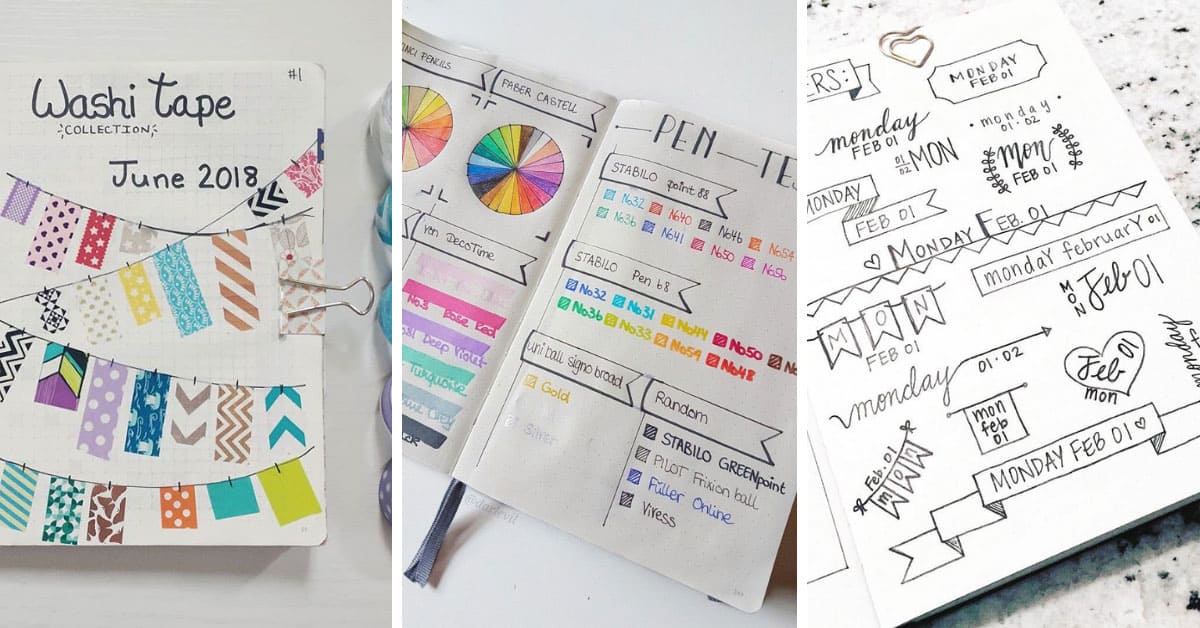 #1
Washi Tape
COLLECTION
June 2018
PENCILS
FABER CASTELL
Von DecoTime
No3 Rose Red
Deep Violet
Turquoise
Grey
PEN
STABILO point 88
No32 No40 No46 No54
No36 No41 No50 No56
STABILO Pen 68
No32 No31 No44 No50
No36 No33 No54 No48
uni ball signo broad
Gold
Silver
Random
STABILO GREENpoint
PILOT Frixion ball
Füller Online
Viress
ERS:
MONDAY
FEB 01
monday
FEB 01
monday
01.02
01
02 MON
mon
FEB 01
MONDAY
FEB 01
MONDAY FEB. 01
monday february 01
MON
FEB 01
MON Feb 01
monday
01.02
Feb 01
mon
monday
mon
feb
01
Feb. 01
MON
MONDAY FEB 01